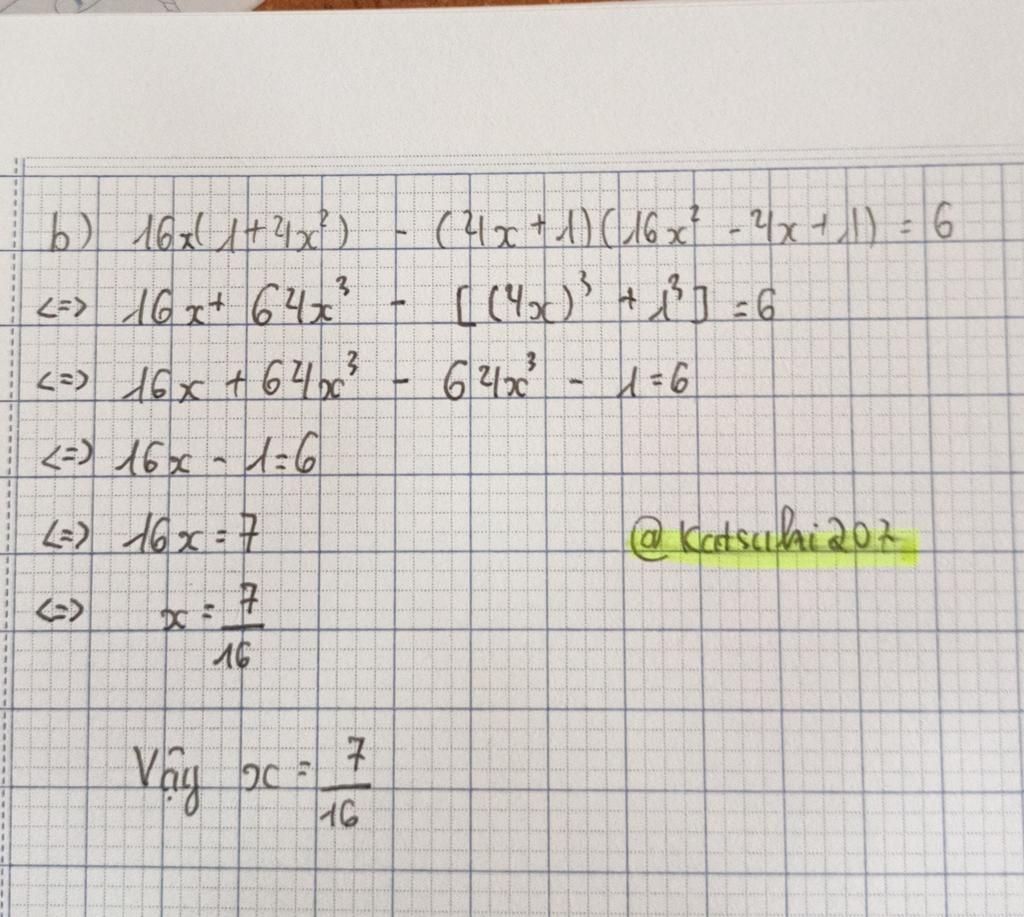 b) 16x(1+4x²) - (4x+1)(16x² - 4x+1) = 6
<=> 16x + 64x³ - [(4x)³ + 1³] = 6
<=> 16x + 64x³ - 64x³ - 1 = 6
<=> 16x - 1 = 6
<=> 16x = 7
@Katsuhi207
<=> x = 7/16
Vậy x = 7/16